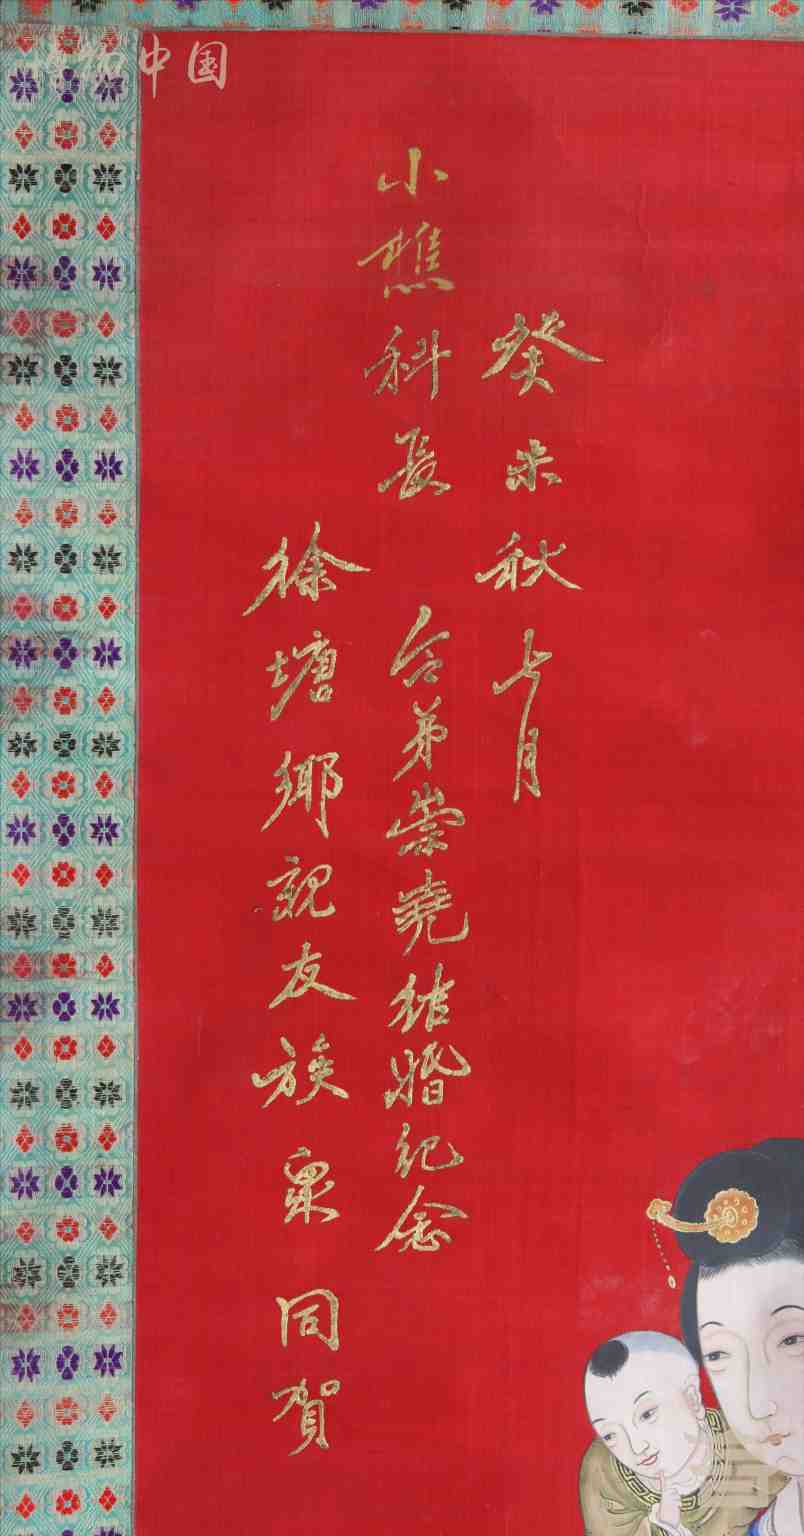 癸未秋七月
小樵科長 令弟崇堯結婚纪念
徐塘鄉親友族眾同賀
中国